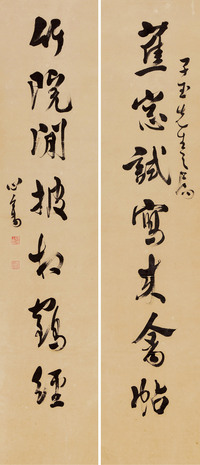 蕉窗試寫來禽帖
先生
竹院閒披相鶴經
心畬